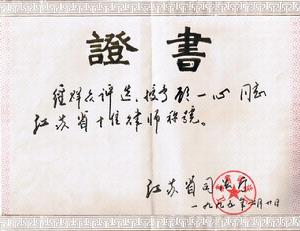 證書
經群众评选、授予顾一心同志
江苏省十佳律师称号。
江苏省司法厅
一九九五年 月廿日